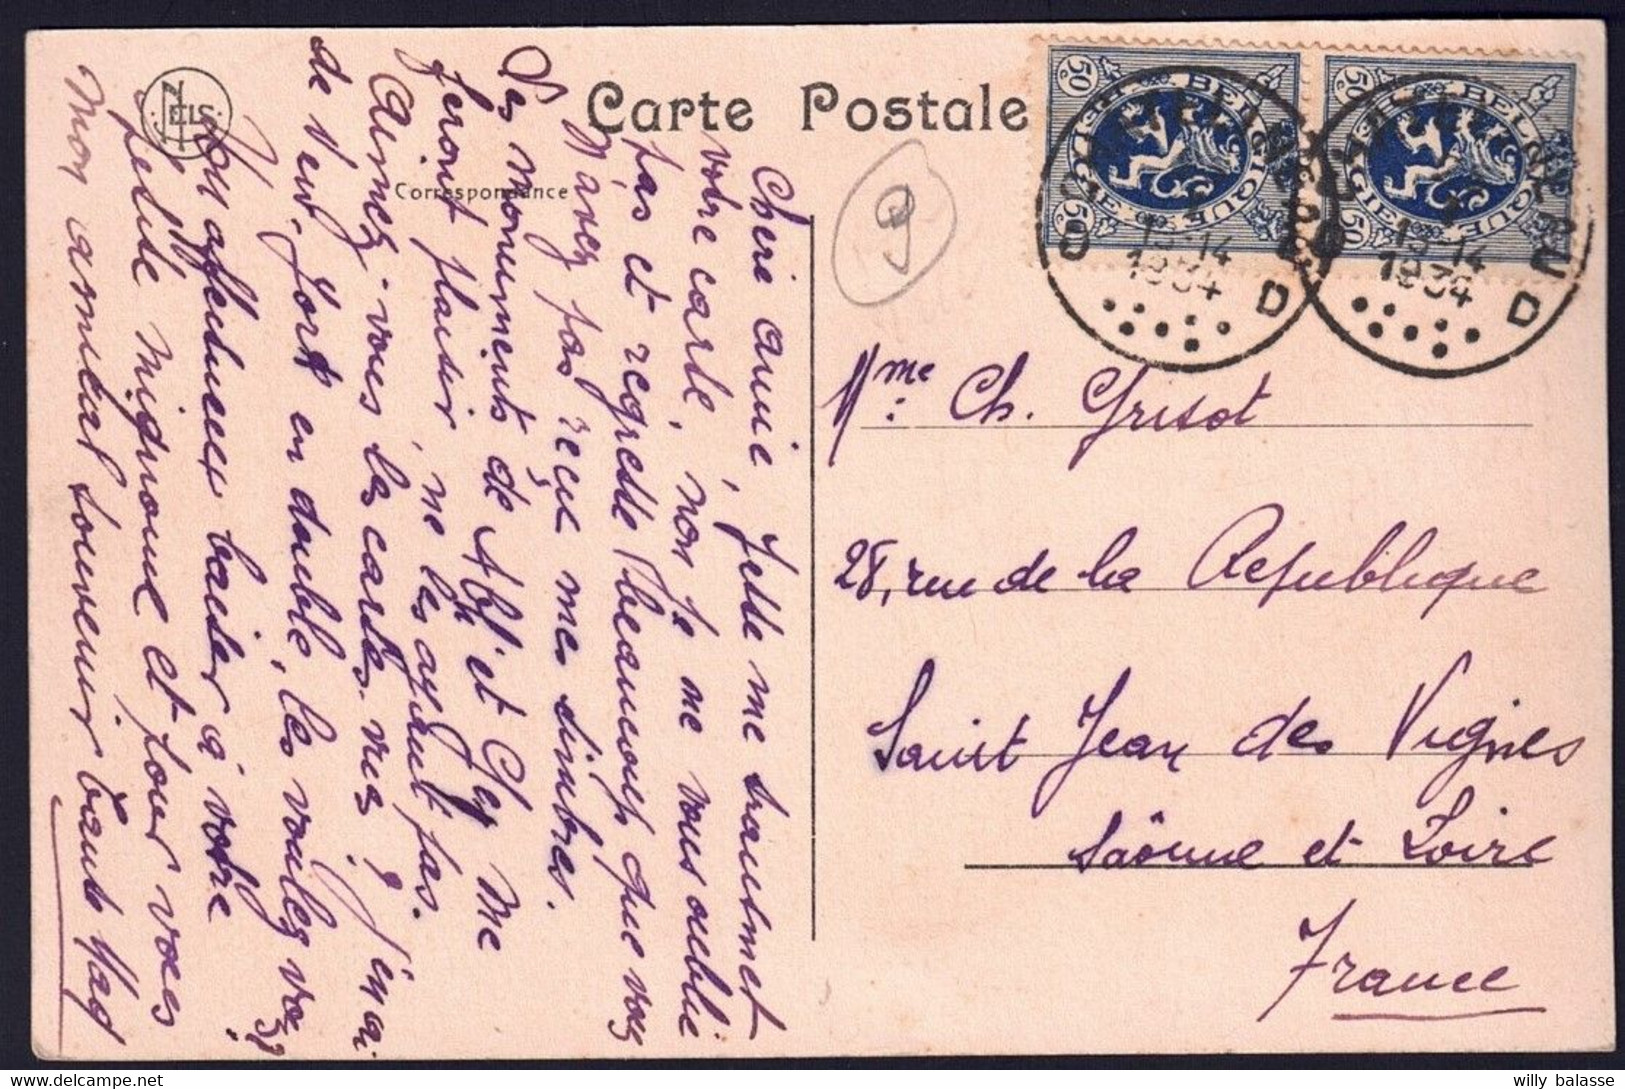 Carte Postale
Correspondance
NELS
Chère amie, Jette me transmet
votre carte, non je ne vous oublie
pas et regrette beaucoup que vous
n'avez pas reçu mes timbres.
Les monuments de et Cley me
feront plaisir, ne les ayant pas.
Aimez-vous les cartes vues ? j'en ai
de Peur, fort en double, les voulez vous ?
Mon affectueux baiser à votre
petite mignonne et pour vous
mon amical souvenir
BELGIQUE BELGIË 50c
BELGIQUE BELGIË 50c
13-14
1934
D
13-14
1934
D
9
Mme Ch. Grisot
28, rue de la République
Saint Jean des Vignes
Saône et Loire
France
willy balasse